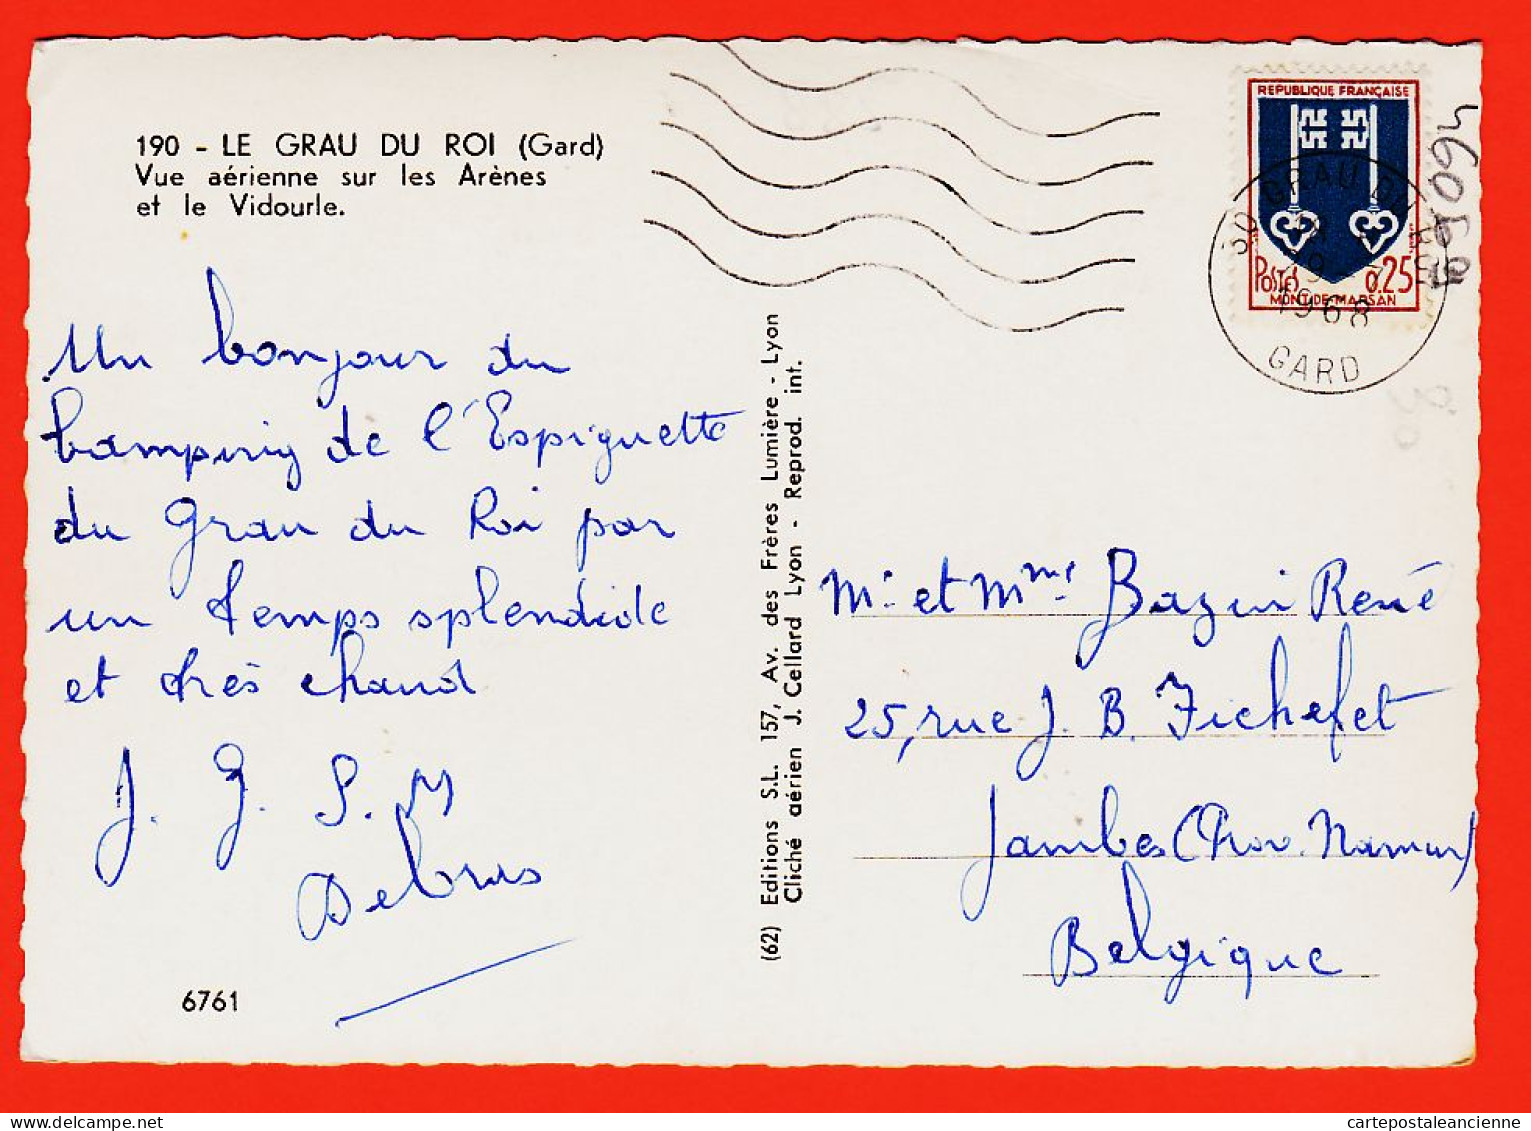 190 - LE GRAU DU ROI (Gard)
Vue aérienne sur les Arènes
et le Vidourle.
Un bonjour du
Camping de l'Espiguette
du Grau du Roi par
un temps splendide
et très chaud
J. J. S. M
Debrus
6761
(62) Editions S.L. 157, Av. des Frères Lumière - Lyon
Cliché aérien J. Cellard Lyon - Reprod. int.
REPUBLIQUE FRANÇAISE
POSTES 0.25
MONT-DE-MARSAN
30 GRAU DU ROI
1968
GARD
Mr et Mme Bazin René
25, rue J. B. Fichefet
Jambes (Prov. Namur)
Belgique
cartepostaleancienne.com